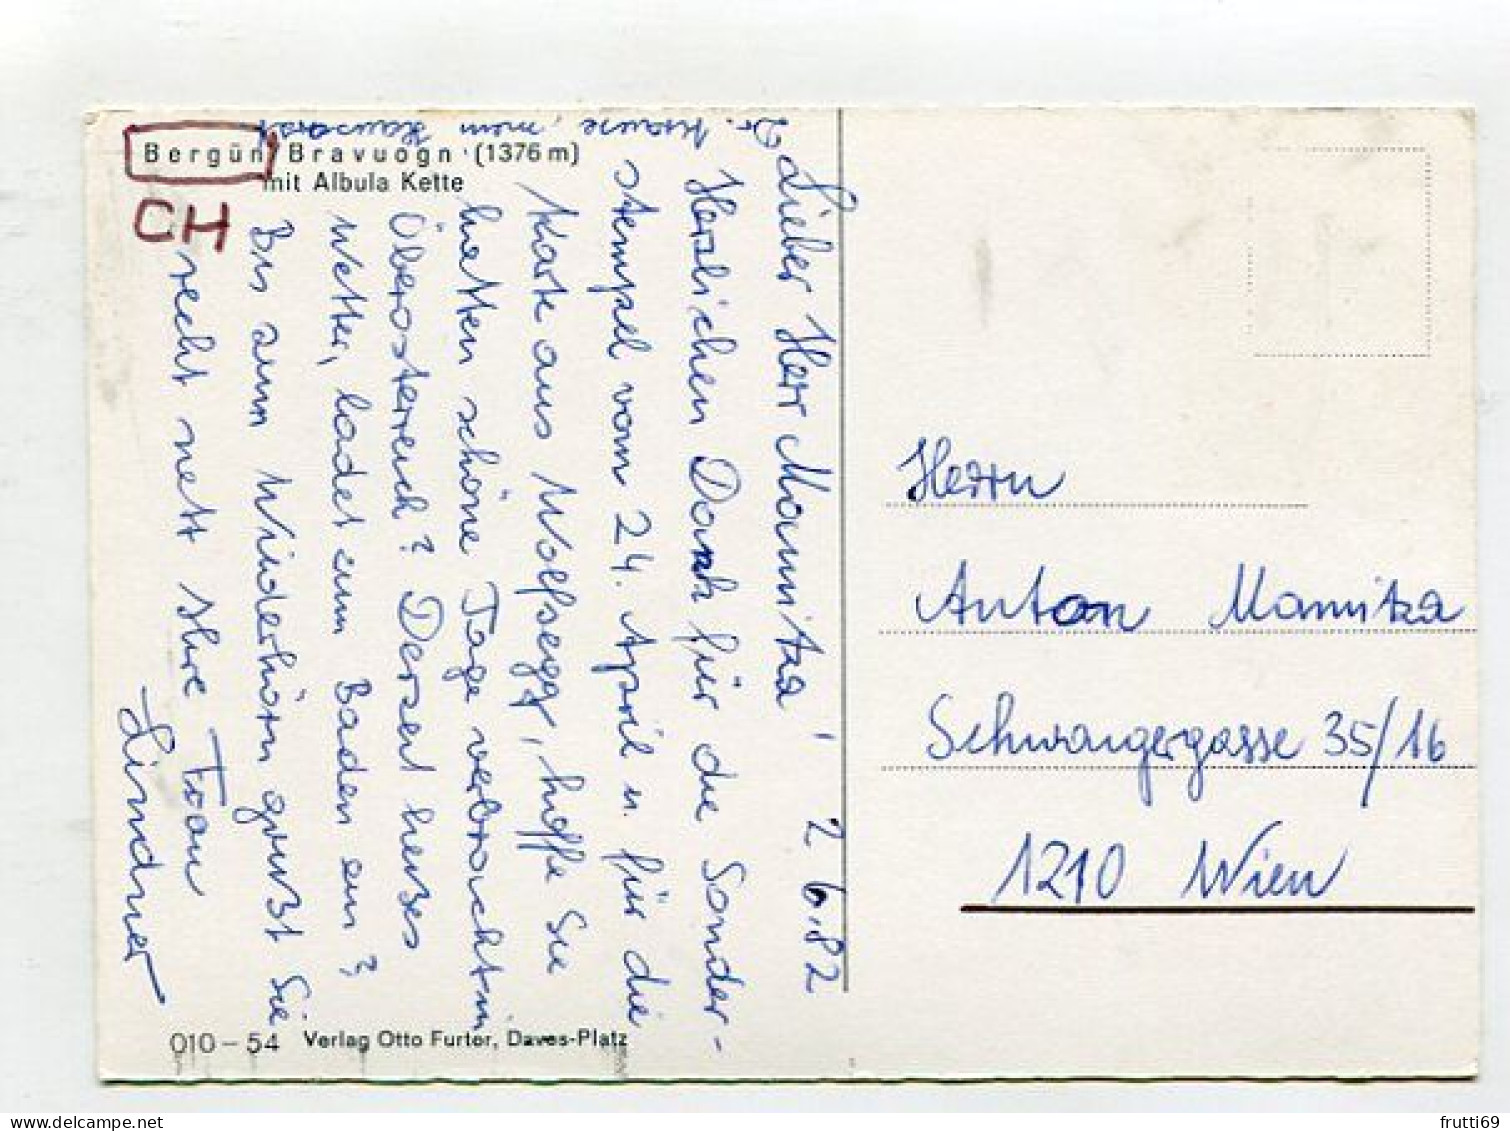 Bergün/Bravuogn (1376 m)
mit Albula Kette
CH
Lieber Herr Mannitza! 2.6.82
Herzlichen Dank für die Sonder-
stempel vom 24. April u. für die
Karte aus Wolfsegg, hoffe Sie
hatten schöne Tage verbracht in
Oberösterreich? Derzeit heißes
Wetter, ladet zum Baden ein?
Bis zum Wiederhören grüßt Sie
recht nett Ihre Frau
Lindner
Dr. Krause, mein Hausarzt
Herrn
Anton Mannitza
Schwaigergasse 35/16
1210 Wien
010 – 54 Verlag Otto Furter, Davos-Platz
frutti69